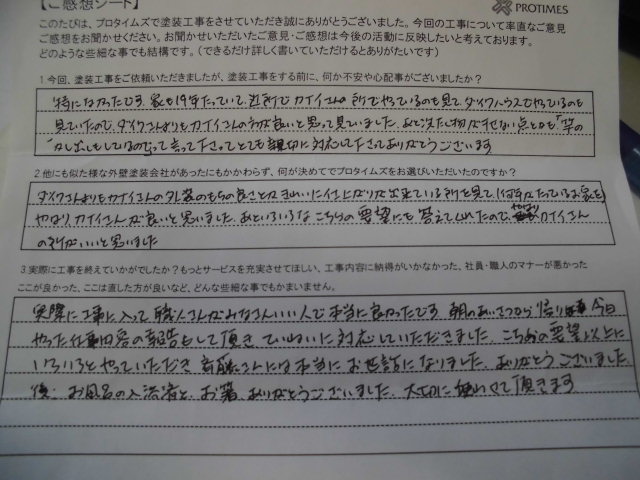 【ご感想シート】
PROTIMES
このたびは、プロタイムズで塗装工事をさせていただき誠にありがとうございました。今回の工事について率直なご意見
ご感想をお聞かせください。お聞かせいただいたご意見・ご感想は今後の活動に反映したいと考えております。
どのような些細な事でも結構です。(できるだけ詳しく書いていただけるとありがたいです)
1 今回、塗装工事をご依頼いただきましたが、塗装工事をする前に、何か不安や心配事がございましたか?
特になかったです。家も19年たっていて、近所でカナイさんの所でやっているのも見て、ダイワハウスでやっているのも
見ていたので、ダイワさんよりもカナイさんの方が良いと思って見ていました。あと洗たく物が干せない点とかも「竿の
かし出しもしているので」って言って下さってとても親切に対応して下さってありがとうございます
2 他にも似た様な外壁塗装会社があったにもかかわらず、何が決めてでプロタイムズをお選びいただいたのですか?
ダイワさんよりもカナイさんの外装のもちの良さとかきれいに仕上がりが出来ている所を見て(何年かたっているお家を)
やはりカナイさんが良いと思いました。あといろいろなこちらの要望にも答えてくれたので、やはりカナイさん
の所がいいと思いました
3 実際に工事を終えていかがでしたか?もっとサービスを充実させてほしい、工事内容に納得がいかなかった、社員・職人のマナーが悪かった
ここが良かった、ここは直した方が良いなど、どんな些細な事でもかまいません。
実際に工事に入って職人さんがみなさんいい人で本当に良かったです。朝のあいさつから帰り 今日
やった仕事内容の報告もして頂きていねいに対応していただきました。こちらの要望以上に
いろいろとやっていただき斉藤さんには本当にお世話になりました。ありがとうございました
後、お風呂の入浴剤と、お箸、ありがとうございました。大切に使わせて頂きます